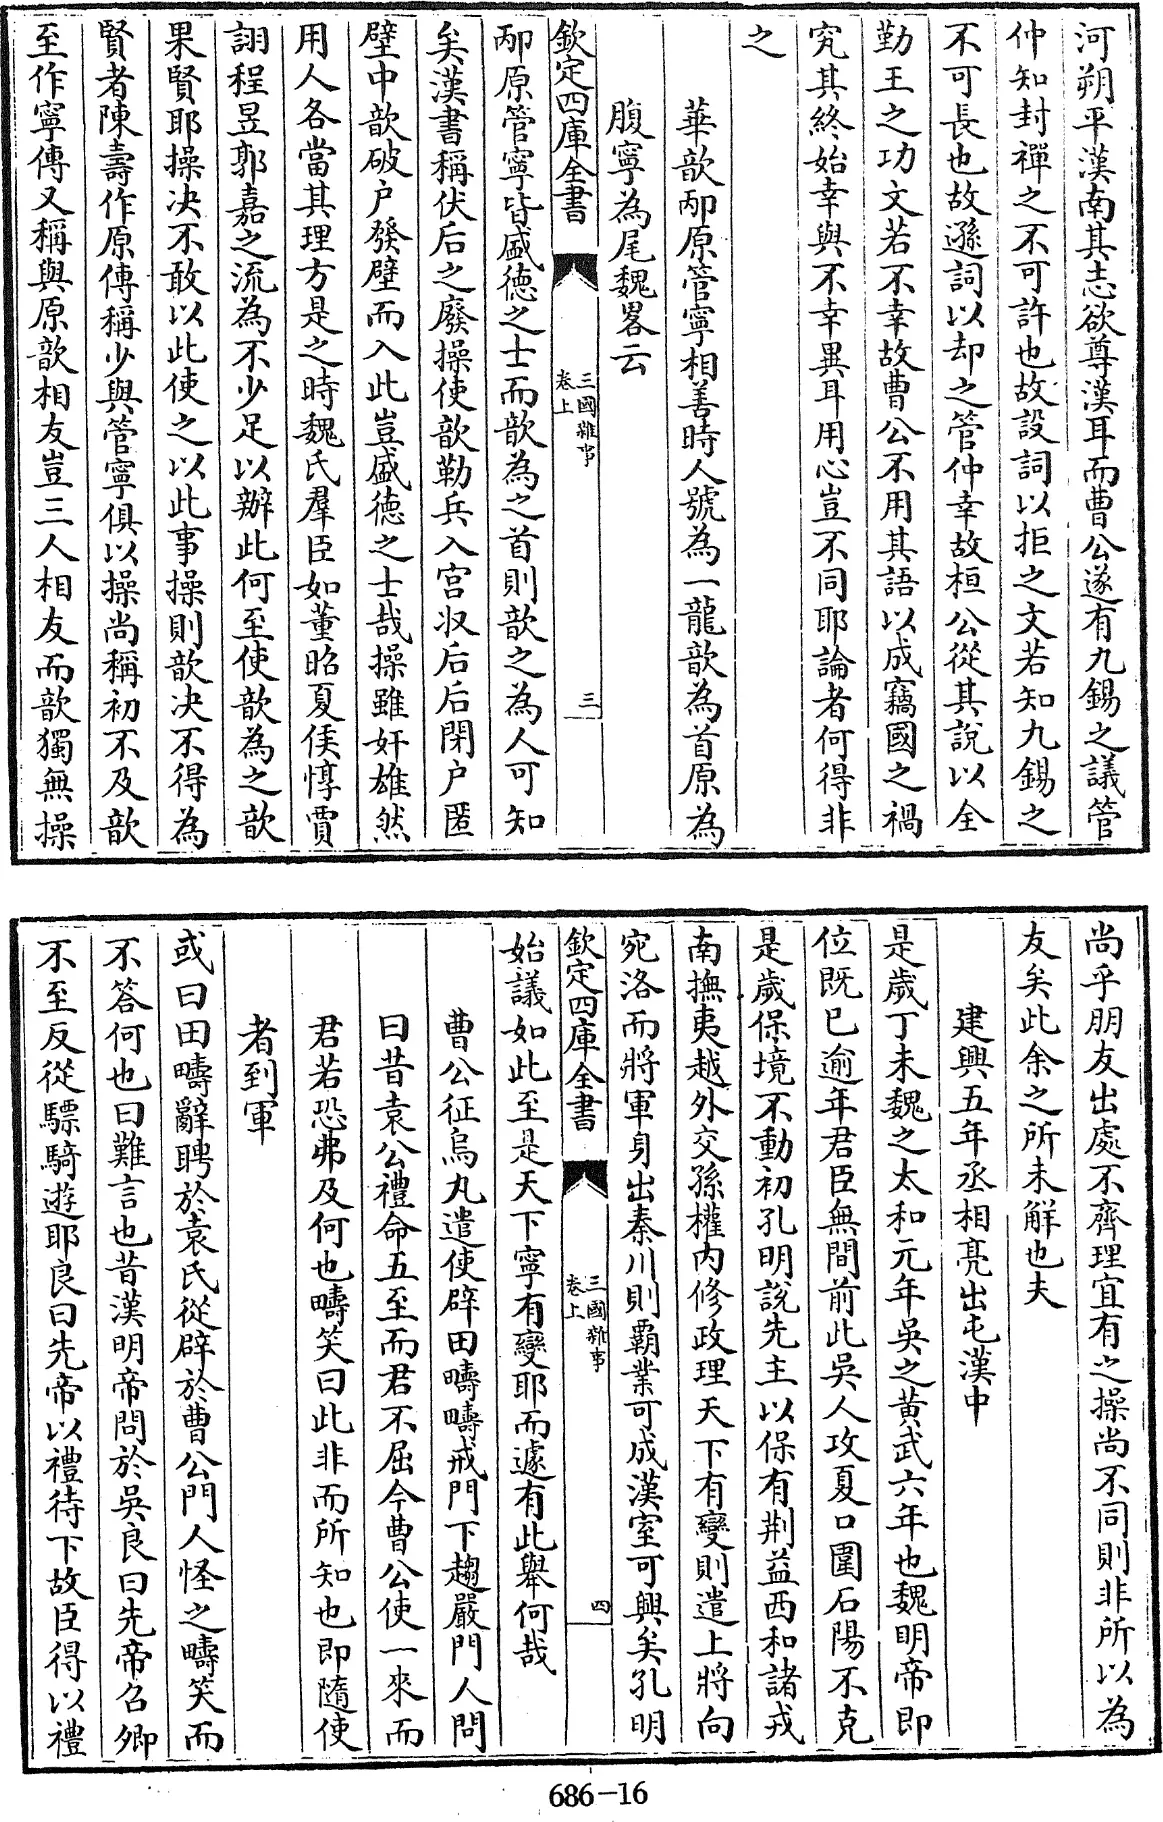 河朔平漢南其志欲尊漢耳而曹公遂有九錫之議管
仲知封禪之不可許也故設詞以拒之文若知九錫之
不可長也故遜詞以却之管仲幸故桓公從其說以全
勤王之功文若不幸故曹公不用其語以成竊國之禍
究其終始幸與不幸異耳用心豈不同耶論者何得非
之
華歆邴原管寧相善時人號為一龍歆為首原為
腹寧為尾魏畧云
欽定四庫全書
三國雜事
卷上
三
邴原管寧皆盛德之士而歆為之首則歆之為人可知
矣漢書稱伏后之廢操使歆勒兵入宫收后后閉户匿
壁中歆破户發壁而入此豈盛德之士哉操雖奸雄然
用人各當其理方是之時魏氏羣臣如董昭夏侯惇賈
詡程昱郭嘉之流為不少足以辦此何至使歆為之歆
果賢耶操决不敢以此使之以此事操則歆决不得為
賢者陳壽作原傳稱少與管寧俱以操尚稱初不及歆
至作寧傳又稱與原歆相友豈三人相友而歆獨無操
尚乎朋友出處不齊理宜有之操尚不同則非所以為
友矣此余之所未解也夫
建興五年丞相亮出屯漢中
是歲丁未魏之太和元年吳之黄武六年也魏明帝即
位既已逾年君臣無間前此吳人攻夏口圍石陽不克
是歲保境不動初孔明說先主以保有荆益西和諸戎
南撫夷越外交孫權内修政理天下有變則遣上將向
宛洛而將軍身出秦川則霸業可成漢室可興矣孔明
欽定四庫全書
三國雜事
卷上
四
始議如此至是天下寧有變耶而遽有此舉何哉
曹公征烏丸遣使辟田疇疇戒門下趨嚴門人問
曰昔袁公禮命五至而君不屈今曹公使一來而
君若恐弗及何也疇笑曰此非而所知也即隨使
者到軍
或曰田疇辭聘於袁氏從辟於曹公門人怪之疇笑而
不答何也曰難言也昔漢明帝問於吳良曰先帝召卿
不至反從驃騎遊耶良曰先帝以禮待下故臣得以禮
686-16